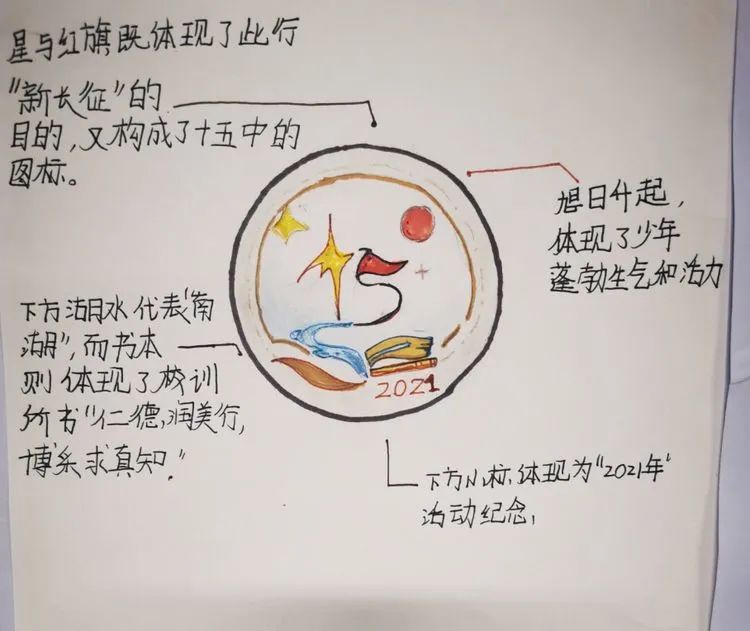 星与红旗既体现了此行
"新长征"的
目的,又构成了十五中的
图标。
旭日升起,
体现了少年
蓬勃生气和活力
下方湖水代表"南
湖",而书本
则体现了校训
所书"仁德,润美行,
博系求真知."
2021
下方小标体现为"2021年"
活动纪念,